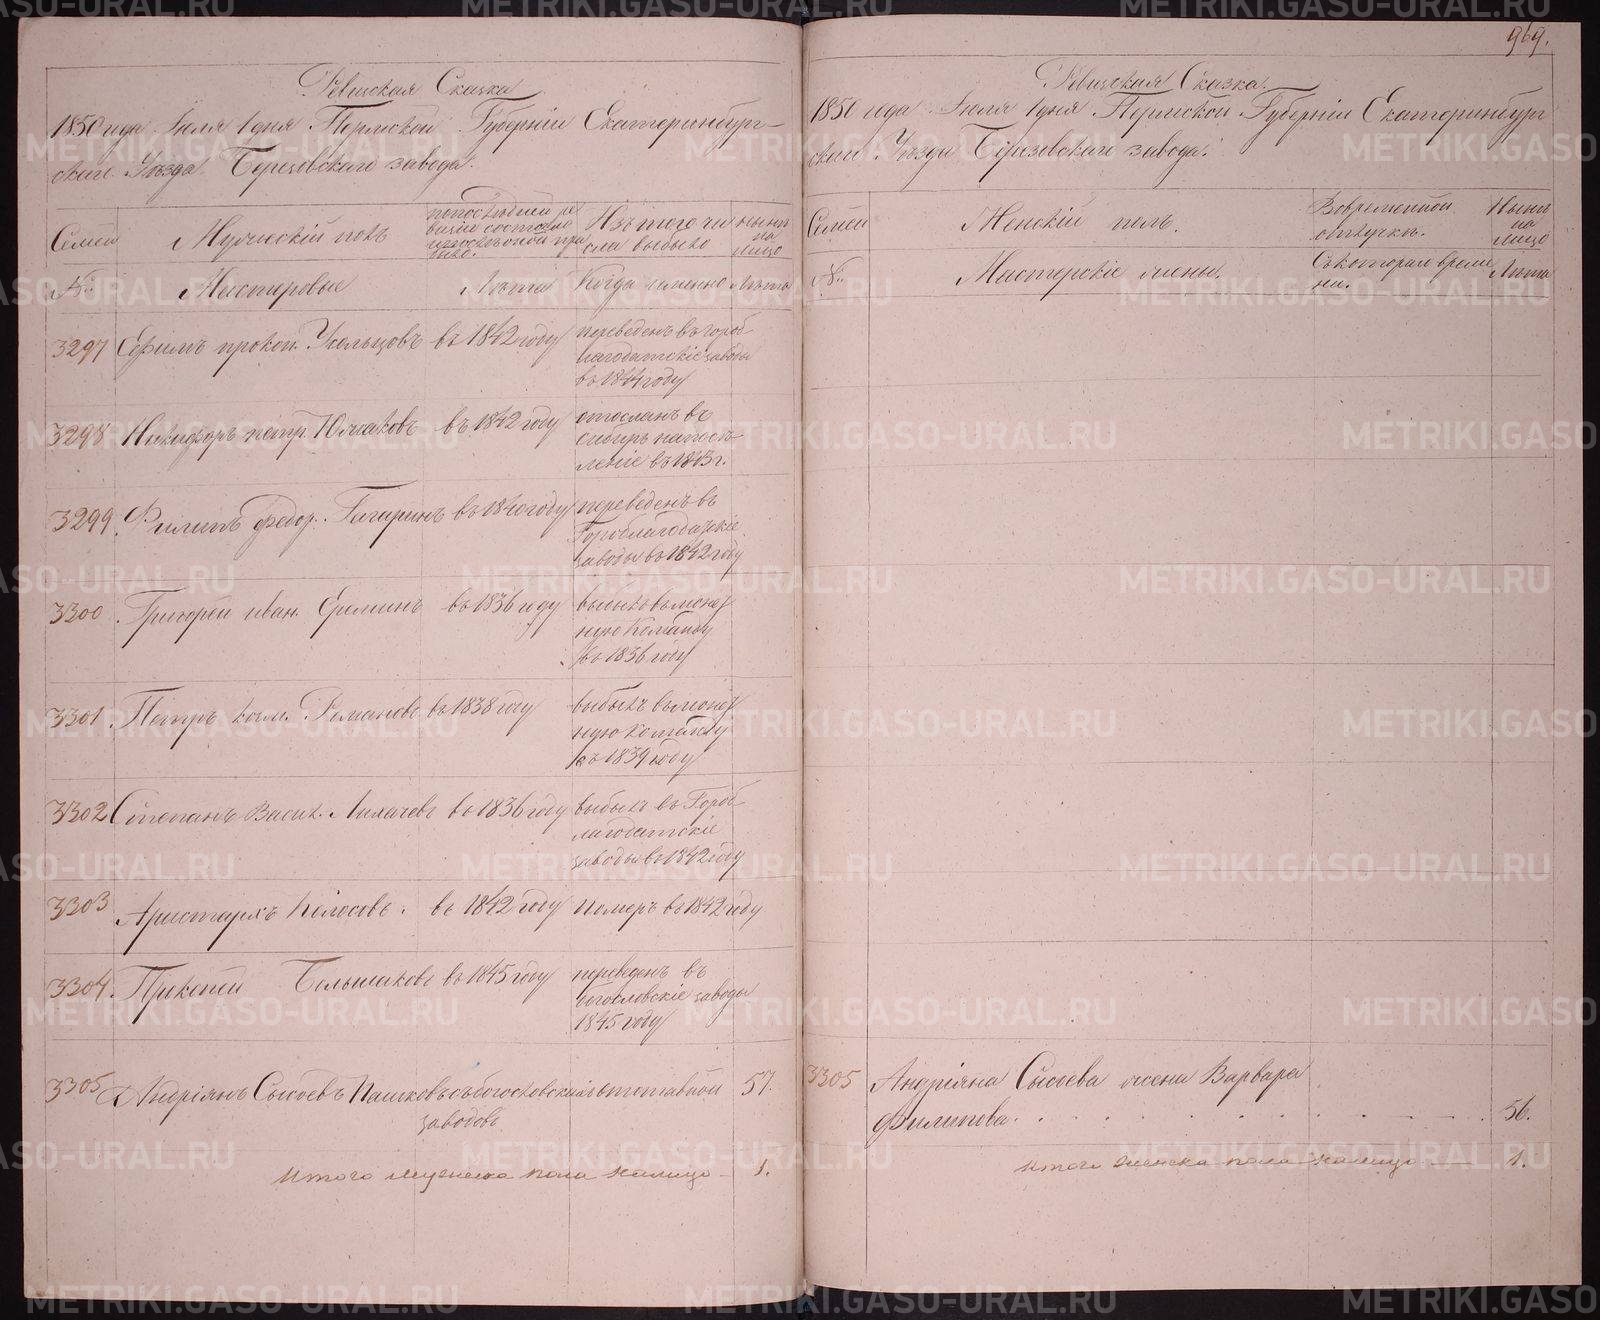 Ревизская Сказка
1850 года Июля 1 дня Пермской Губерніи Екатеринбург-
скаго Уѣзда Березовскаго завода.
Семей
Мужескій полъ
по послѣдней ре
визіи состояло
Изъ того чи
сла выбыло
нынѣ
на
лицо
№
Мастеровые
Лѣта
Когда именно
Лѣта
3297 Ефимъ прокоп. Усольцовъ въ 1842 году
переведенъ въ Гороб-
лагодатскіе заводы
въ 1844 году
3298 Никифоръ петр. Южаковъ въ 1842 году
отосланъ въ
сибирь на посе-
леніе въ 1843 г.
3299 Филипъ федор. Гагаринъ въ 1840 году
переведенъ въ
Гороблагодатскіе
заводы въ 1842 году
3300 Григорей иван. Ереминъ въ 1836 году
Команду
въ 1836 году
3301 Петръ Романовъ въ 1838 году
выбылъ
ную команду
въ 1839 году
3302 Степанъ Васил. Лихачевъ въ 1836 году
выбылъ въ Гороб-
лагодатскіе
заводы въ 1842 году
3303 Аристархъ Колосовъ. въ 1842 году
Померъ въ 1842 году
3304 Прокопей Большаковъ въ 1845 году
переведенъ въ
богословскіе заводы
1845 году
3305 Андріянъ Сысоевъ Пашковъ съ богословскихъ отставной 57.
заводовъ
Итого мужеска пола налицо 1.
969.
Ревизская Сказка.
1850 года Июля 1 дня Пермской Губерніи Екатеринбург
скаго Уѣзда Березовскаго завода.
Семей
Женскій полъ.
Во временной
отлучкѣ.
Нынѣ
на
лицо
№
Мастерскіе жены.
Съ котораго време
ни.
Лѣта
3305 Андріяна Сысоева жена Варвара
Филипова. 56.
Итого женска пола налицо 1.
METRIKI.GASO-URAL.RU